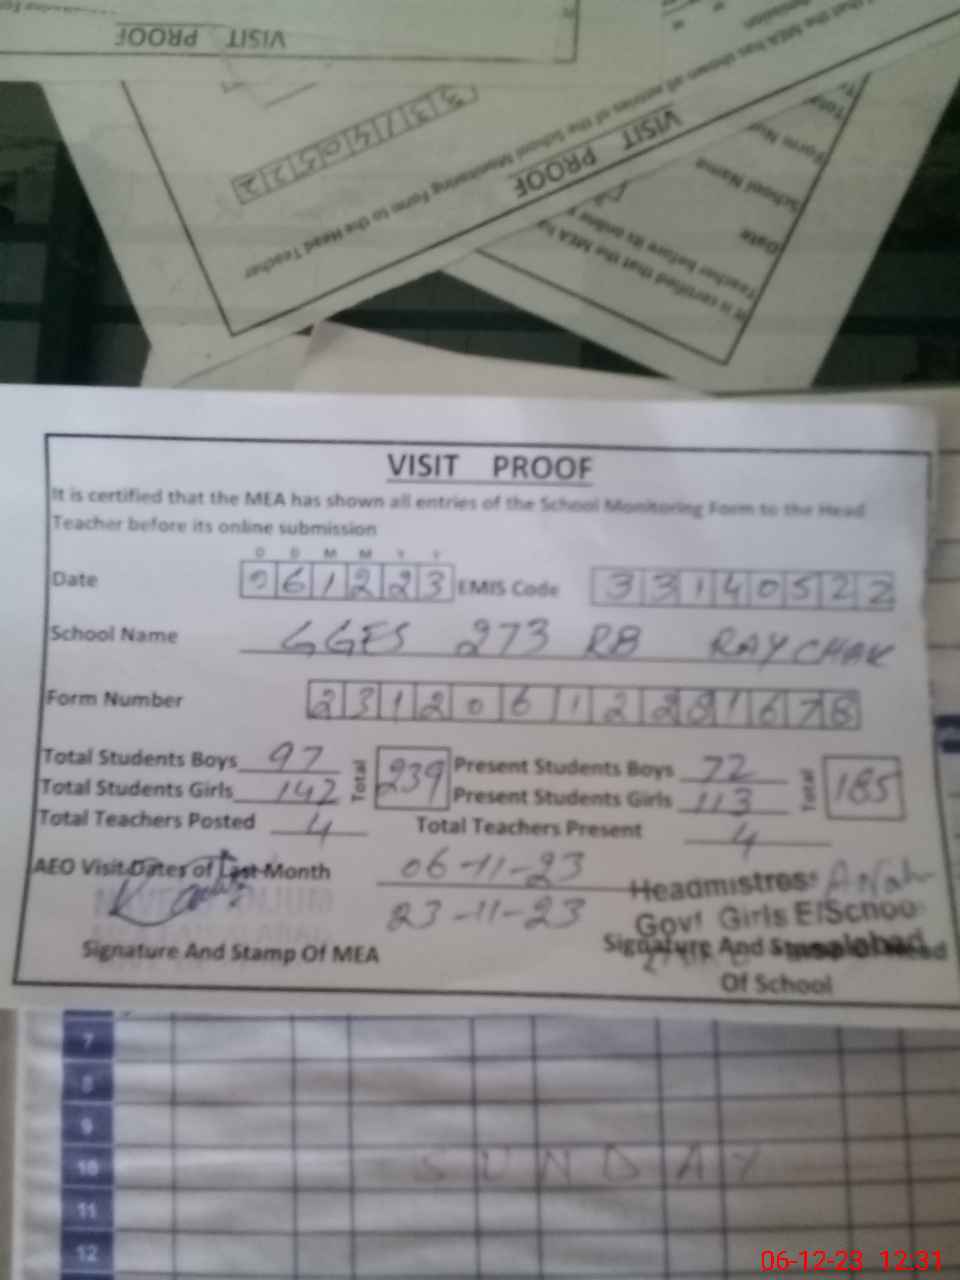 VISIT PROOF
VISIT PROOF
that the MEA has shown all entries of the School Monitoring Form to the Head Teacher
33140522
It is certified that the MEA
Teacher before its online
Date
School Name
VISIT PROOF
It is certified that the MEA has shown all entries of the School Monitoring Form to the Head
Teacher before its online submission
D D M M Y Y
Date 061223 EMIS Code 33140522
School Name GGES 273 RB RAY CHAK
Form Number
Total Students Boys 97 Total 239 Present Students Boys 72 Total 185
Total Students Girls 142 Present Students Girls 113
Total Teachers Posted 4 Total Teachers Present 4
AEO Visit Dates of Last Month 06-11-23
23-11-23
Headmistress
Govt Girls E/School
Signature And Stamp Of MEA Signature And Stamp Of Head
Of School
7
8
9
10 SUNDAY
11
12
06-12-23 12.31